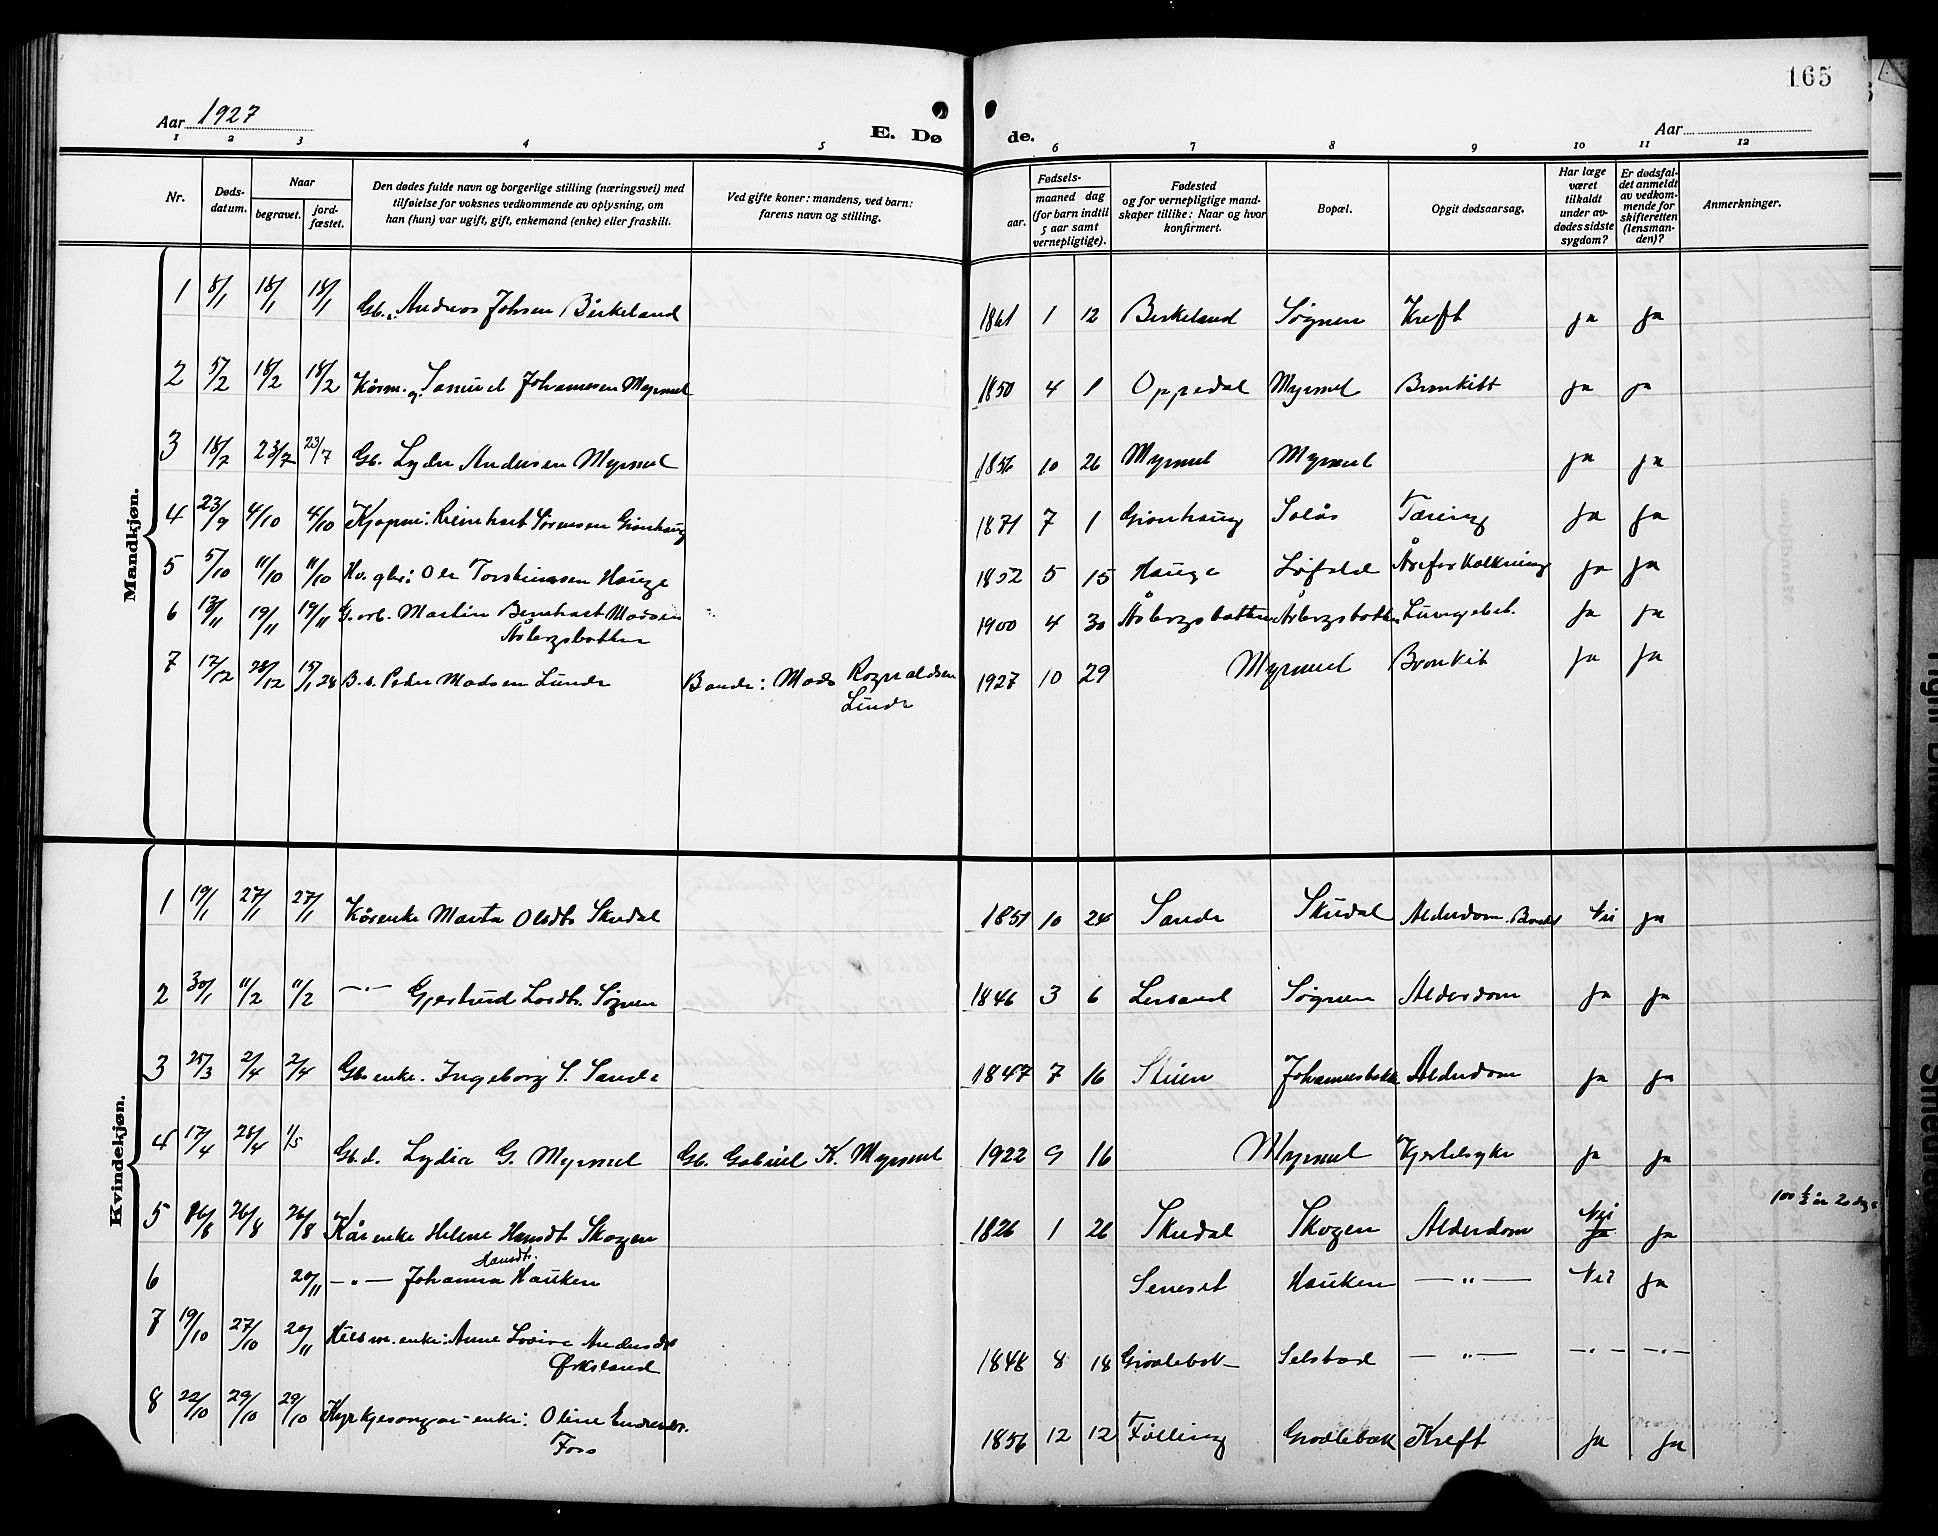 165
Aar 1927
E. Dø de.
Aar
1 2 3 4 5 6 7 8 9 10 11 12
Nr. Døds-datum. Naar begravet. jord-fæstet. Den dødes fulde navn og borgerlige stilling (næringsvei) med tilføielse for voksnes vedkommende av oplysning, om han (hun) var ugift, gift, enkemand (enke) eller fraskilt. Ved gifte koner: mandens, ved barn: farens navn og stilling. Fødsels- aar. maaned dag (for barn indtil 5 aar samt vernepligtige). Fødested og for vernepligtige mand-skaper tillike: Naar og hvor konfirmert. Bopæl. Opgit dødsaarsag. Har læge været tilkaldt under av-dødes sidste sygdom? Er dødsfal-det anmeldt av vedkom-mende for skifteretten (lensman-den)? Anmerkninger.
Mandkjøn.
1 8/1 18/1 18/1 Gb. Andreas Johsen Birkeland 1861 1 12 Birkeland Søgnen Kreft ja ja
2 5/2 18/2 18/2 Kårm. Samuel Johannesen Myrmel 1850 4 1 Oppedal Myrmel Bronkitt ja ja
3 18/7 23/7 23/7 Gb. Lyder Andersen Myrmel 1856 10 26 Myrmel Myrmel ja ja
4 23/9 4/10 4/10 Kjøpm: Reinhart Sørensen Grønhaug 1871 7 1 Grønhaug Solås Tæring ja ja
5 5/10 11/10 11/10 Ole Torsteinssen Hauge 1852 5 15 Hauge Åreforkalkning ja ja
6 13/11 19/11 19/11 G.arb. Martin Bernhart Madsen 1900 4 30 Åsbergsbotten Åsbergsbotten Lungebet. ja ja
Åsbergsbotten
7 17/12 28/12 15/1 28 B.s. Peder Madsen Lunde Bonde: Mads Rognaldsen 1927 10 29 Myrmel Bronkit ja ja
Lunde
Kvindekjøn.
1 19/1 27/1 27/1 Kårenke Marta Olsdtr Skudal 1851 10 24 Sande Skudal Alderdom. Nei ja
2 30/1 11/2 11/2 —"— Gjertrud Larsdtr. Søgnen 1846 3 6 Leirsand Søgnen Alderdom ja ja
3 25/3 2/4 2/4 Gb enke. Ingeborg S. Sande 1847 7 16 Johannesbakk Alderdom ja ja
4 17/4 28/4 1/5 Gb.d. Lydia G. Myrmel Gb. Gabriel K. Myrmel 1922 9 16 Myrmel Kjertelsyke ja ja
100 ½ år 20 dg.
5 16/8 26/8 26/8 Kårenke Helene Hansdt Skogen 1826 1 26 Skudal Skogen Alderdom Nei ja ja
6 20/11 —"— Johanna Hansdt. Hauken Seneset Hauken —"— Nei ja
7 19/10 27/10 20/11 enke: Anne Lovise Andersdt 1848 8 18 Grodlebak Selstad —"— —"— —"—
Ørksland
8 22/10 29/10 29/10 Kyrkjesongar-enke: Oline Endresdtr. 1856 12 12 Følling Grodlebak Kreft ja ja
Foss